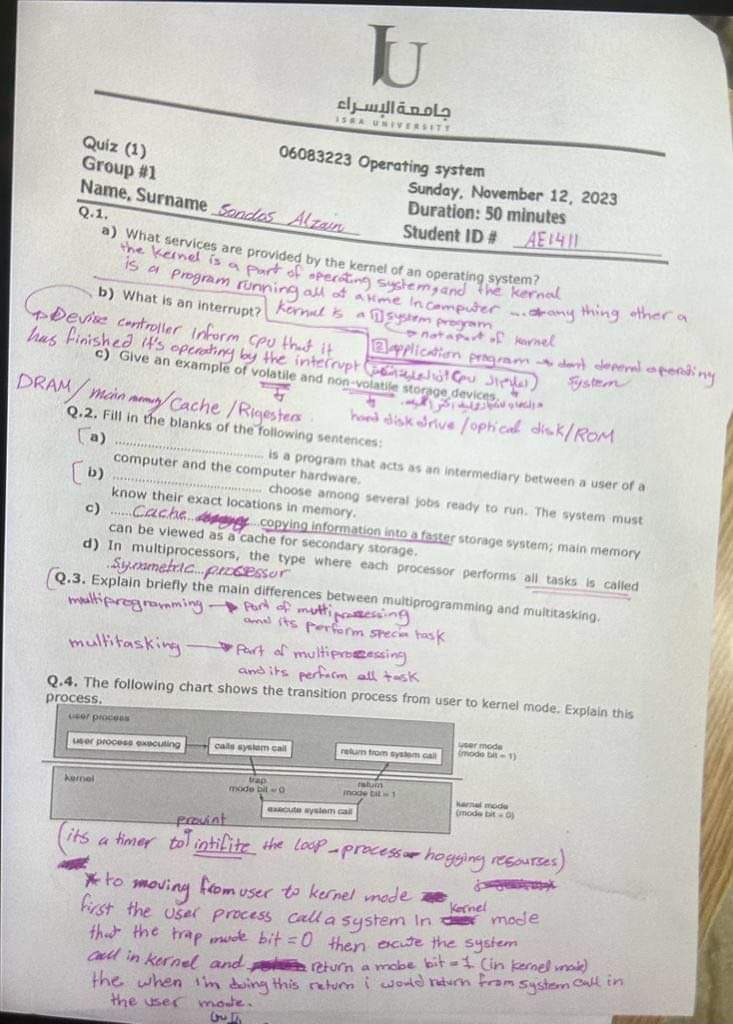 IU
جامعة الإسراء
ISRA UNIVERSITY
06083223 Operating system
Quiz (1)
Sunday, November 12, 2023
Group #1
Duration: 50 minutes
Name, Surname Sondos Alzain
Student ID # AE1411
Q.1.
a) What services are provided by the kernel of an operating system?
the kernel is a part of operating system, and the kernal
is a program running all at a time In computer ... any thing other a
b) What is an interrupt?
kernal is a ① system program
→ not a part of kernal
② application program → dont depend operating
system
→ Devise controller inform CPU that it
has finished it's operating by the interrupt
c) Give an example of volatile and non-volatile storage devices.
DRAM / main memory / Cache / Rigesters.
hard disk drive / optical disk / ROM
Q.2. Fill in the blanks of the following sentences:
a) ........................................ is a program that acts as an intermediary between a user of a
computer and the computer hardware.
b) ........................................ choose among several jobs ready to run. The system must
know their exact locations in memory.
c) ......Cache...........copying information into a faster storage system; main memory
can be viewed as a cache for secondary storage.
d) In multiprocessors, the type where each processor performs all tasks is called
.Symmetric...processor
Q.3. Explain briefly the main differences between multiprogramming and multitasking.
maltiprogramming → Part of multiprocessing
and its perform specia task
multitasking → Part of multiprocessing
and its perform all task
Q.4. The following chart shows the transition process from user to kernel mode. Explain this
process.
user process
user process executing
calls system call
return from system call
user mode
(mode bit = 1)
kernel
trap
mode bit = 0
return
mode bit = 1
execute system call
kernel mode
(mode bit = 0)
(its a timer to provint intifite the loop - process hogging resourses)
* to moving from user to kernel mode
first the user process call a system In kernel mode
that the trap mode bit = 0 then excute the system
call in kernel and return a mobe bit = 1 (in kernel mode)
the when I'm doing this return i would return from system call in
the user mode.